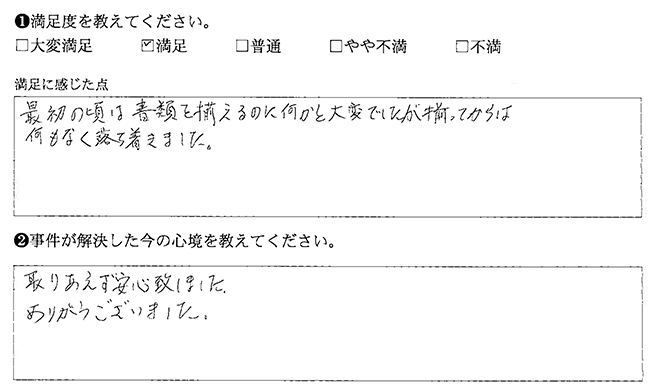 ❶満足度を教えてください。
□大変満足 ☑満足 □普通 □やや不満 □不満
満足に感じた点
最初の頃は書類を揃えるのに何かと大変でしたが揃ってからは
何もなく落ち着きました。
❷事件が解決した今の心境を教えてください。
取りあえず安心致しました。
ありがとうございました。